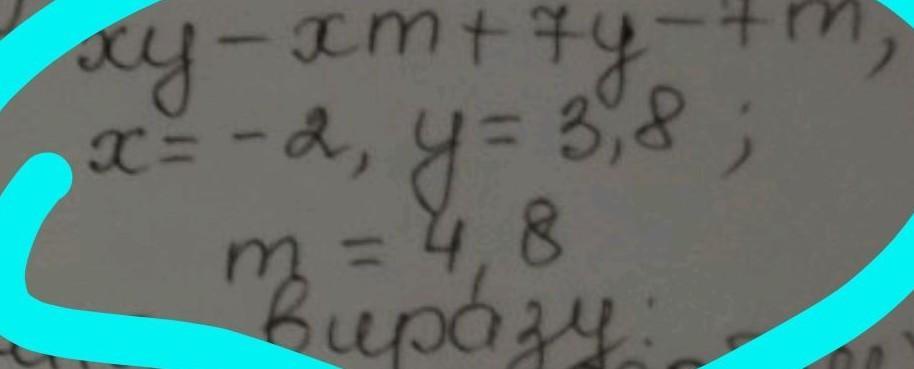 xy - xm + 7y - 7m,
x = -2, y = 3,8 ;
m = 4,8
виразу: